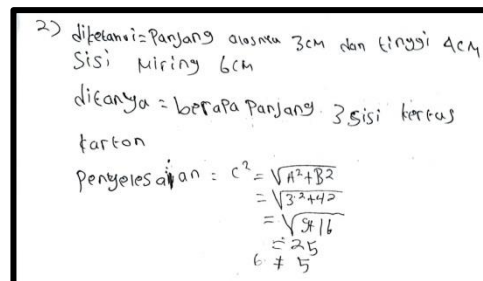 2) diketahui = Panjang alasnya 3cm dan tinggi 4cm
Sisi Miring 6cm
ditanya = berapa Panjang 3 sisi kertas
karton
Penyelesaian = C² = √A²+B2
= √3²+42
= √9+16
= 25
6 ≠ 5